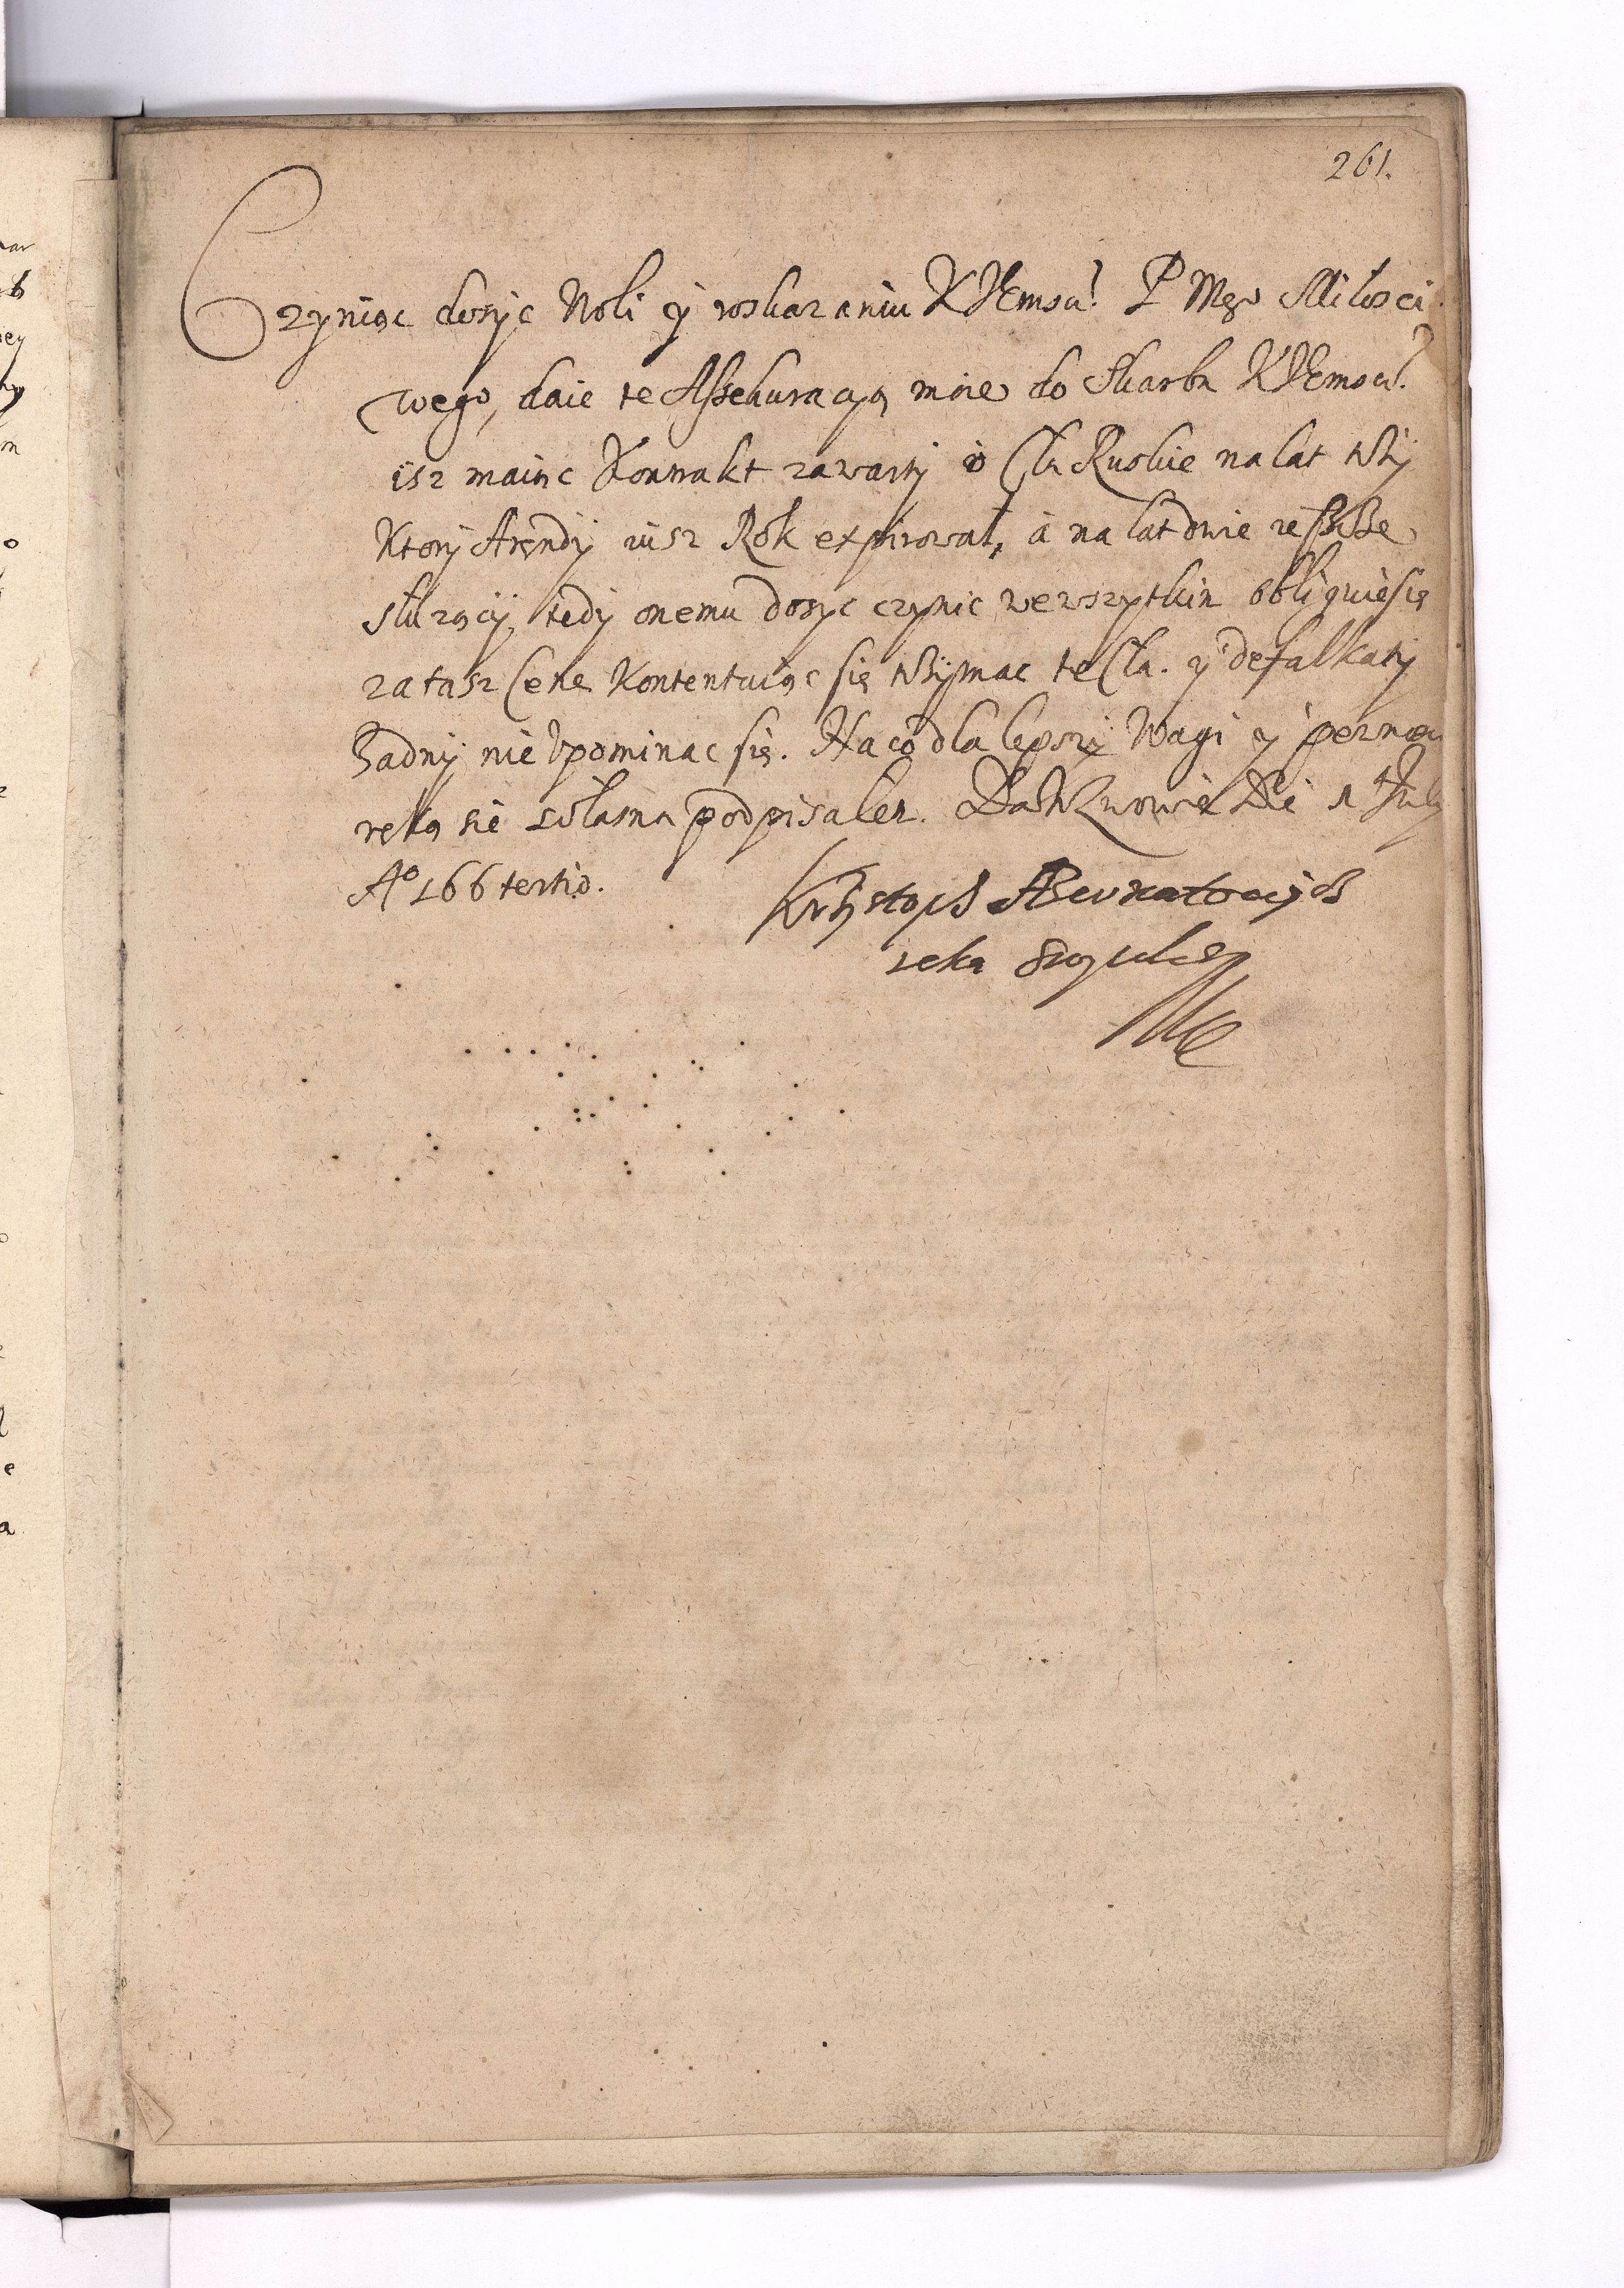 261.
Czyniąc dosyc Woli y roskazaniu KJEmsci P Mgo Miłosci
wego, daie te Assekuracyą moie do Skarbu KJEmsci
isz maiąc Kontrakt zawarty o Cła Ruskie na lat trzy
Ktory Arendy iusz Rok expirował, á na lat dwie ieszcze
słuzący, tedy onemu dosyc czynic we wszytkim obliguie się
za tasz Cene Kontentuiąc się trzymac te Cła. y defalkaty
Zadny nie Vpominac się. Na co dla lepszy Wagi y pewnosci
ręką sie własną podpisałem. Dat w Lwowie Die 1 July
Aº 166 tertio.
Krzysztoph
reka swą